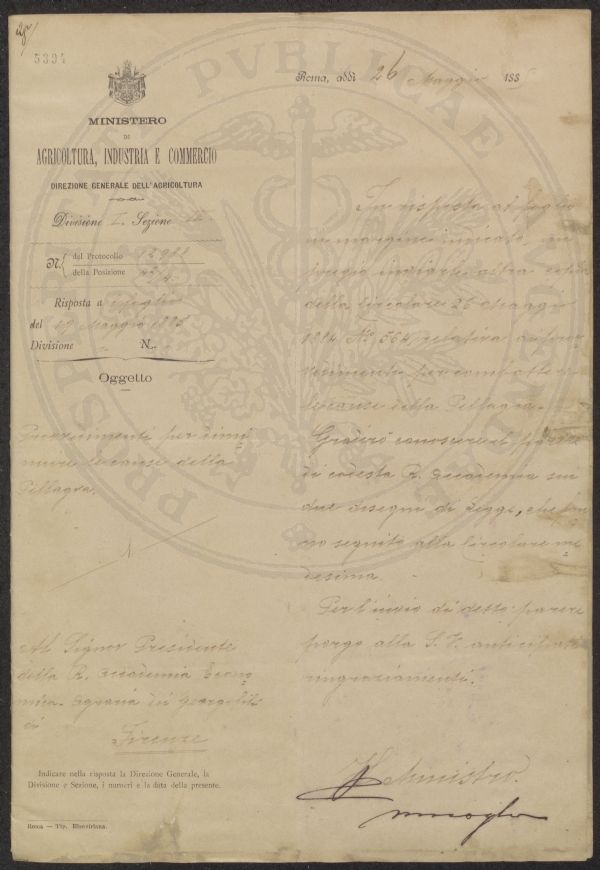 5394
Roma, addì 26 Maggio 188
MINISTERO
DI
AGRICOLTURA, INDUSTRIA E COMMERCIO
DIREZIONE GENERALE DELL'AGRICOLTURA
Divisione I. Sezione
N. del Protocollo
della Posizione
Risposta a foglio
del 19 Maggio 1885
Divisione N.
Oggetto
Provvedimenti per dimi
nuire le cause della
Pellagra.
Al Signor Presidente
della R. Accademia Econo
mica-Agraria dei Georgofili
di
Firenze
Indicare nella risposta la Direzione Generale, la
Divisione e Sezione, i numeri e la data della presente.
Roma — Tip. Elzeviriana.
In risposta al foglio
in margine indicato, mi
pregio inviarle altra copia
della circolare 26 Maggio
1884 N.º 564, relativa a prov
vedimenti per combattere
le cause della Pellagra.
Gradirò conoscere il parere
di codesta R. Accademia sui
due disegni di Legge, che fan
no seguito alla circolare me
desima.
Per l'invio di detto parere
porgo alla S. V. anticipati
ringraziamenti.
Il Ministro
PROSPERITATI PVBLICAE AVGENDAE